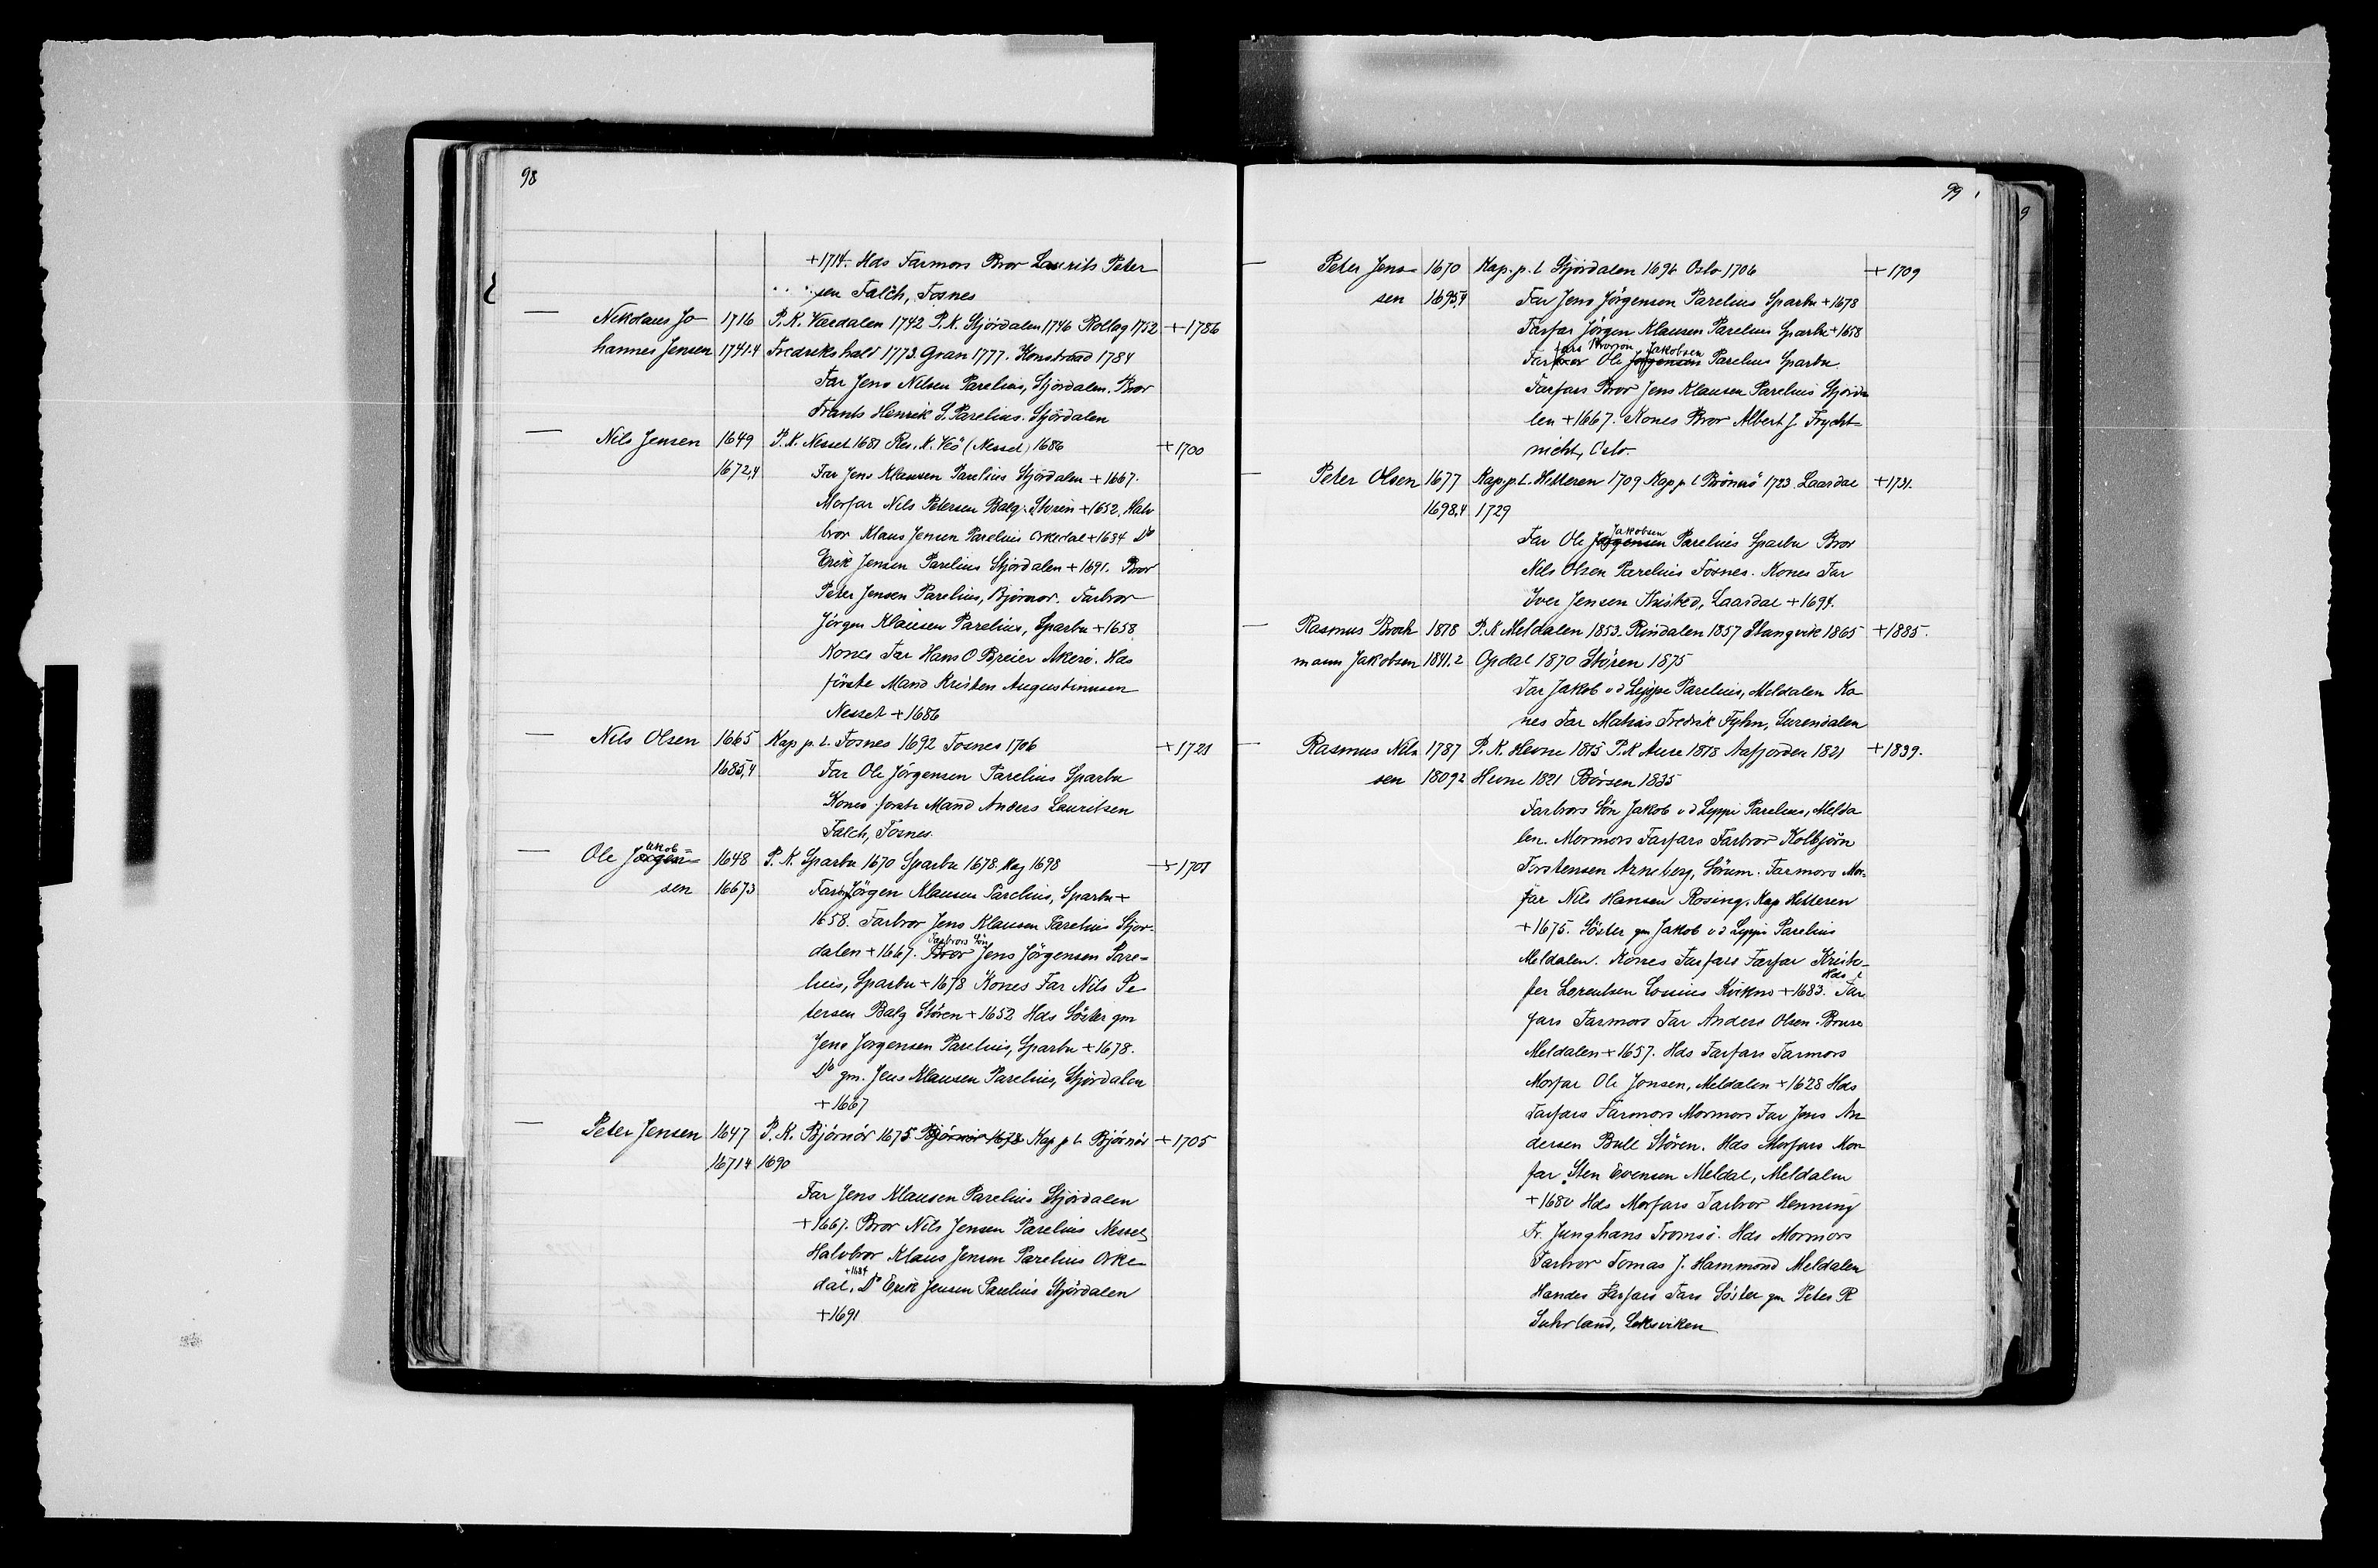 98
+1714. Hds Farmors Bror Laurits Peter
sen Falch, Fosnes
— Nikolaus Jo- 1716 P. K. Værdalen 1742 P. K. Stjördalen 1746 Rollag 1752 +1786
hannes Jensen 1741.4 Fredrikshald 1773. Gran 1777. Konstraad 1784
Far Jens Nilsen Parelius, Stjördalen. Bror
Frants Henrik S. Parelius. Stjördalen
— Nils Jensen 1649 P. K. Nesset 1681 Res. K. Veö (Nesset) 1686 +1700
1672,4 Far Jens Klausen Parelius Stjördalen +1667.
Morfar Nils Petersen Balg. Stören +1652. Halv
bror Klaus Jensen Parelius Orkedal +1684 Do
Erik Jensen Parelius Stjördalen +1691. Bror
Peter Jensen Parelius, Björnör. Farbror
Jörgen Klausen Parelius, Sparbu +1658
Kones Far Hans O Breier Akerö. Hds
förste Mand Kristen Augustinusen
Nesset +1686
— Nils Olsen 1665 Kap p. l. Fosnes 1692 Fosnes 1706 +1721
1685,4 Far Ole Jörgensen Parelius Sparbu
Kones förste Mand Anders Lauritsen
Falch, Fosnes.
— Ole Jörgen= akob= 1648 P. K. Sparbu 1670 Sparbu 1678. Mag 1698 +1701
sen 1667.3 Farbr Jörgen Klausen Parelius, Sparbu +
1658. Farbror Jens Klausen Parelius Stjör-
dalen +1667. Bror Farbrors Sön Jens Jörgensen Pare-
lius, Sparbu +1678 Kones Far Nils Pe
tersen Balg Stören +1652 Hds Söster gm
Jens Jörgensen Parelius, Sparbu +1678.
Do gm. Jens Klausen Parelius, Stjördalen
+1667
— Peter Jensen 1647 P. K. Björnör 1675 Björnör 1678 Kap p. l. Björnör +1705
1671.4 1690
Far Jens Klausen Parelius Stjördalen
+1667. Bror Nils Jensen Parelius Nesset
Halvbror Klaus Jensen Parelius Orke
dal. +1684 Do Erik Jensen Parelius Stjördalen
+1691
99
— Peter Jens- 1670 Kap. p. l Stjördalen 1696 Oslo 1706 +1709
sen 1695,4 Far Jens Jörgensen Parelius Sparbu +1678
Farfar Jörgen Klausen Parelius Sparbu +1658
Farbror fars Brorsön Ole Jörgensen Jakobsen Parelius Sparbu
Farfars Bror Jens Klausen Parelius Stjörda
len +1667. Kones Bror Albert J. Frycht
nicht, Oslo.
— Peter Olsen 1677 Kap. p. l. Hitteren 1709 Kap p l Brönnö 1723 Laardal +1731.
1698,4 1729
Far Ole Jörgensen Jakobsen Parelius Sparbu Bror
Nils Olsen Parelius Fosnes. Kones Far
Iver Jensen Thisted, Laardal +1694.
— Rasmus Brock 1818 P. K Meldalen 1853. Rindalen 1857 Stangvik 1865 +1885.
mann Jakobsen 1841.2 Opdal 1870 Stören 1875
Far Jakob v d Lippe Parelius, Meldalen Ko
nes Far Matias Fredrik Fyhn, Surendalen
— Rasmus Nils 1787 P. K. Hevne 1815 P. K Aure 1818 Aafjorden 1821 +1839.
sen 1809.2 Hevne 1821 Börsen 1835
Farbrors Sön Jakob v d Lippe Parelius, Melda
len. Mormors Farfars Farbror Kolbjörn
Torstensen Arneberg, Sörum. Farmors Mor-
far Nils Hansen Rosing. Kap Hitteren
+1675. Söster gm Jakob v d Lippe Parelius
Meldalen. Kones Farfars Farfar Kristo-
fer Lorentsen Lossius Kvikne +1683. Hds Far
fars Farmors Far Anders Olsen Bruse
Meldalen +1657. Hds Farfars Farmors
Morfar Ole Jonsen, Meldalen +1628 Hds
Farfars Farmors Mormors Far Jens An
dersen Bull Stören. Hds Morfars Mor
far Sten Evensen Meldal, Meldalen
+1680 Hds Morfars Farbror Henning
Fr. Junghans Tromsö. Hds Mormors
Farbror Tomas J. Hammond Meldalen
Handes Farfars Fars Söster gm Peter R
Suhrland, Leksviken
9